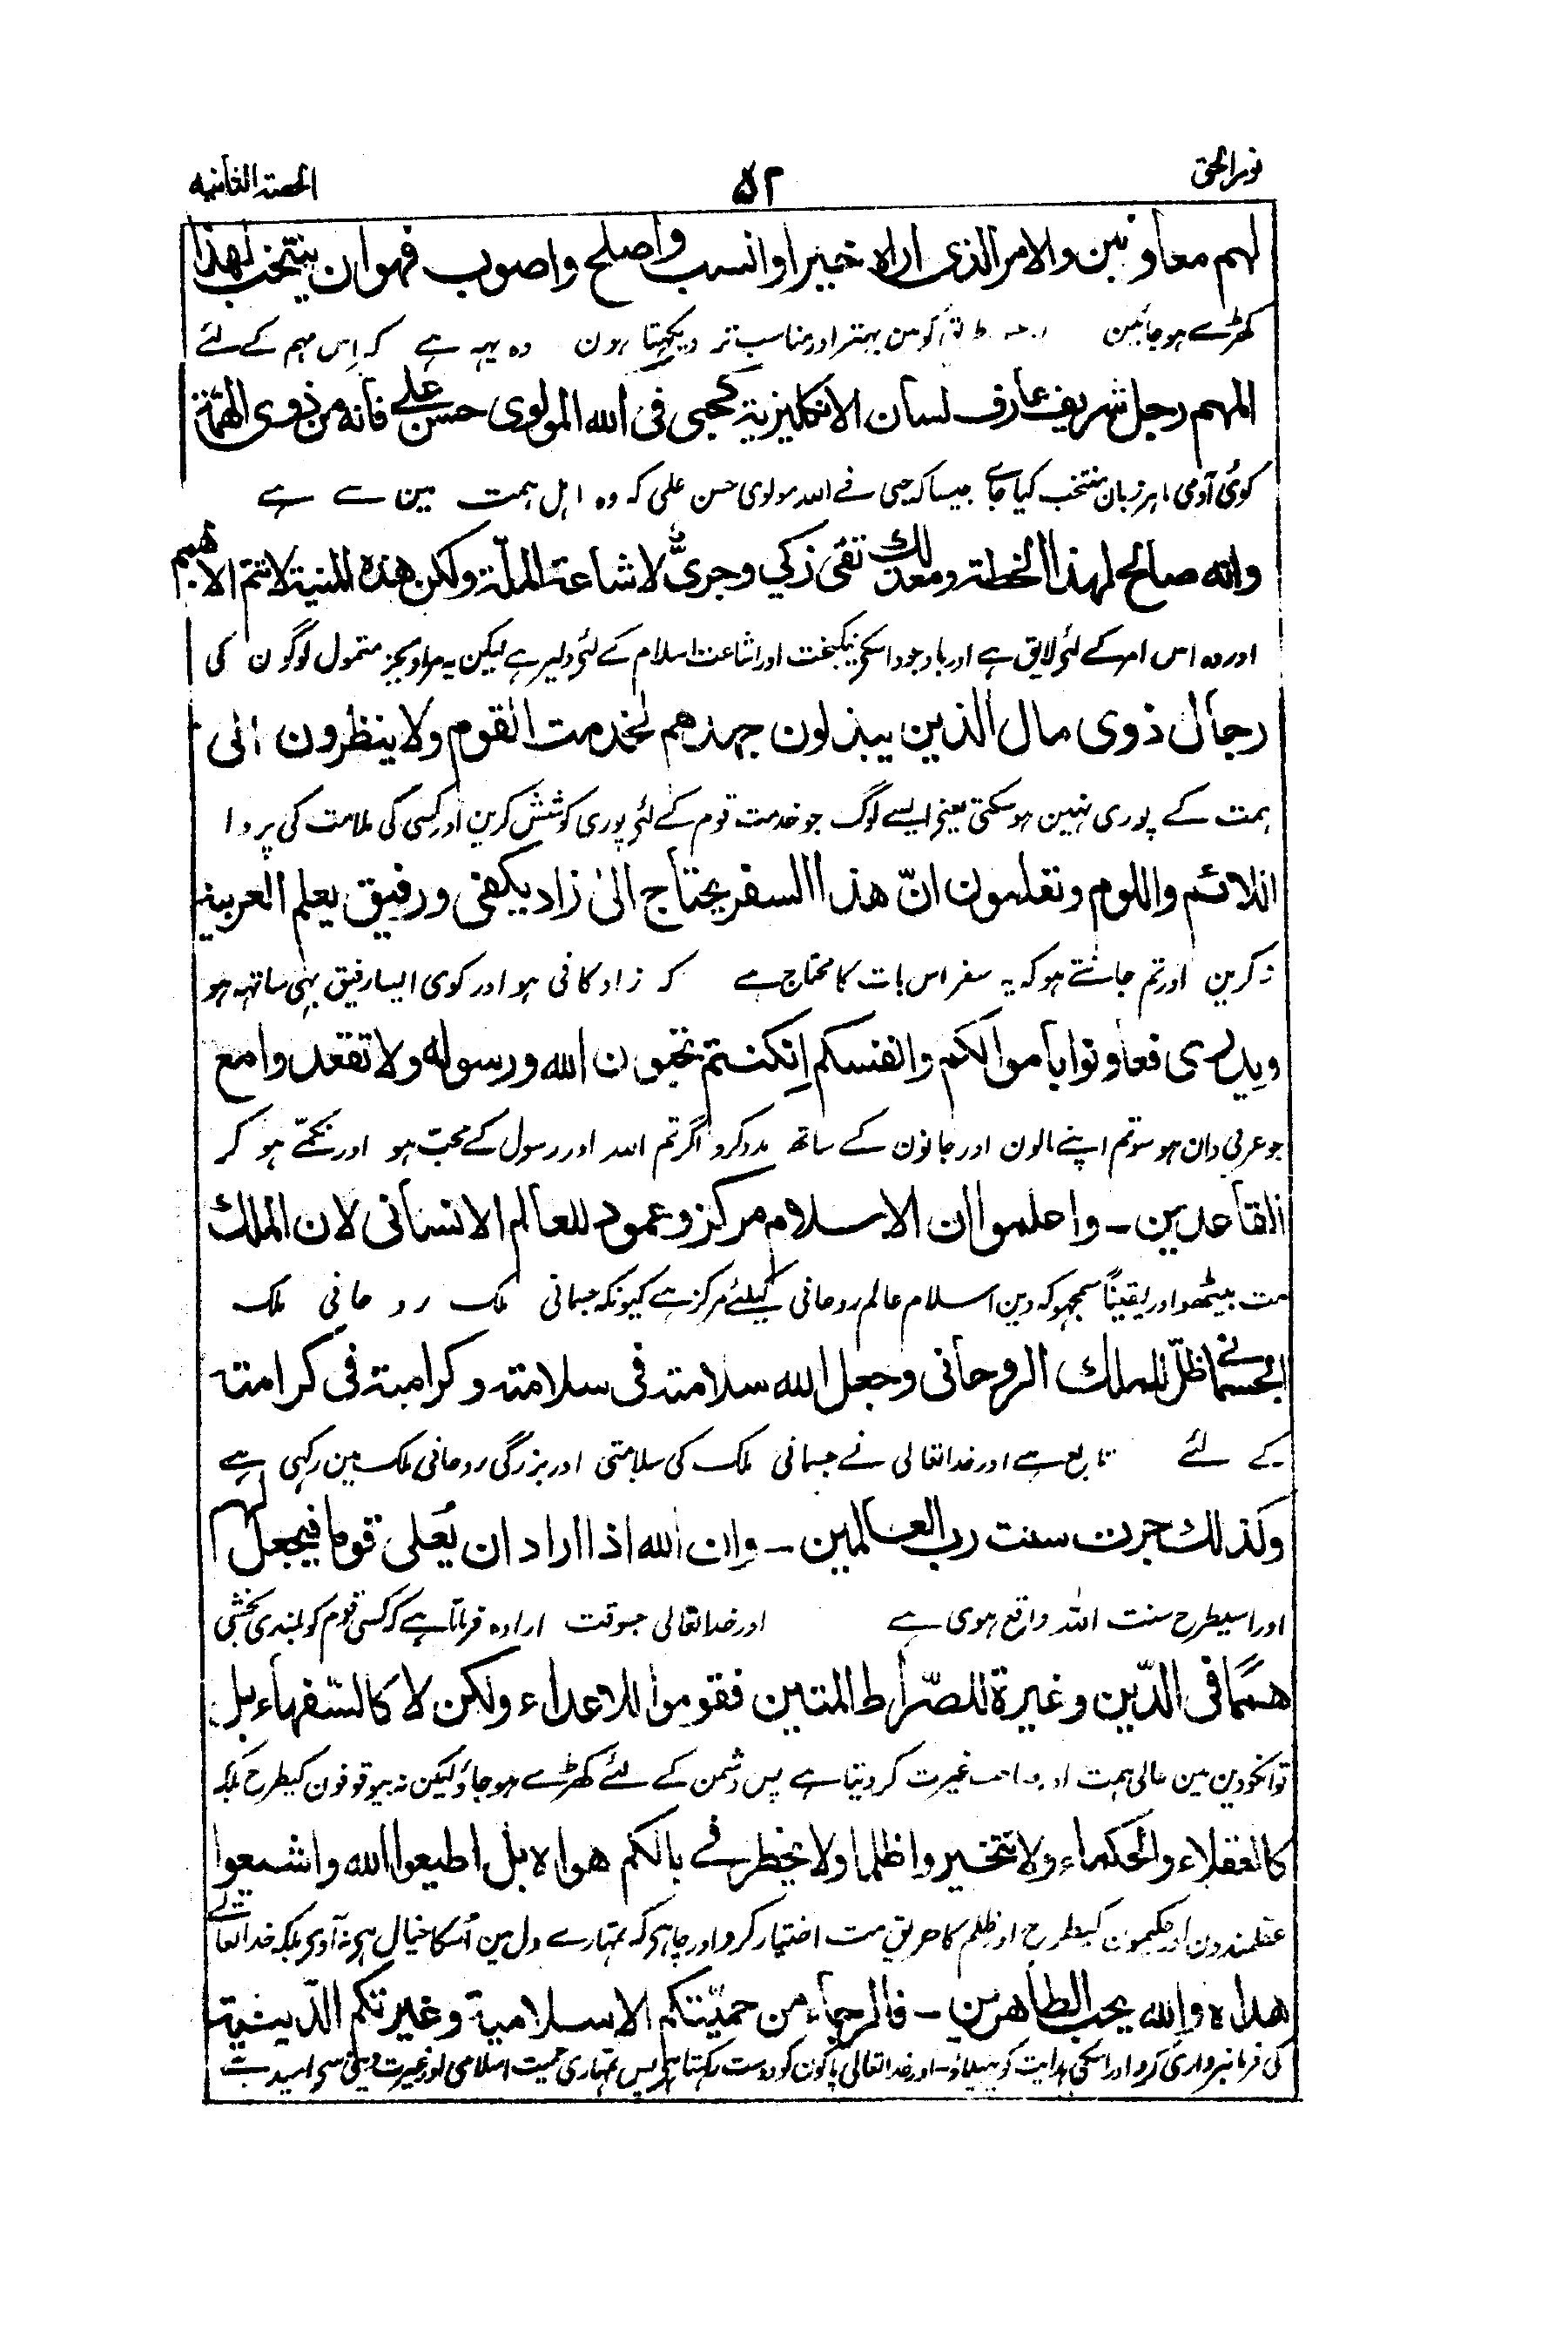 نور الحق
۵۲
الحصة الثانية
لهم معاونين والامر الذى اراه خيرا وانسب واصلح واصوب فهو ان ينتخب لهذا
کھڑے ہو جائین کو مین بہتر اور مناسب تر دیکھتا ہون وہ یہہ ہے کہ اِس مہم کے لئے
المهم رجل شريف عارف لسان الانكليزية كحبى فى الله المولوى حسن على فانه من ذوى الهمة
کوئی آدمی ماہر زبان منتخب کیا جاے جیسا کہ حبی فے اللہ مولوی حسن علی کہ وہ اہل ہمت مین سے ہے
وانه صالح لهذا الخطة ومع ذلك تقى زكي وجرىٌّ لاشاعة الملّة ولكن هذه المنية لا تتم الا بهمم
اور وہ اس امر کے لئے لایق ہے اور باوجود اسکے نیکبخت اور اشاعت اسلام کے لئے دلیر ہے لیکن یہ مراد بجز متمول لوگون کی
رجال ذوى مال الذين يبذلون جهدهم لخدمت القوم ولا ينظرون الى
ہمت کے پوری نہین ہو سکتی یعنے ایسے لوگ جو خدمت قوم کے لئے پوری کوشش کرین اور کسی کی ملامت کی پروا
اللائم واللوم وتعلمون انّ هذا السفر يحتاج الى زاد يكفى ورفيق يعلم العربية
نہ کرین اور تم جانتے ہو کہ یہ سفر اس بات کا محتاج ہے کہ زاد کافی ہو اور کوی ایسا رفیق بہی ساتھہ ہو
ويدرى فعاونوا باموالكم وانفسكم اِنكنتم تحبون الله ورسوله ولا تقعدوا مع
جو عربی دان ہو سو تم اپنے مالون اور جانون کے ساتھ مدد کرو اگر تم اللہ اور رسول کے محب ہو اور نکمّے ہو کر
القاعدين ـ واعلموا ان الاسلام مركز وعمود للعالم الانسانى لان الملك
مت بیٹھو اور یقیناً سمجھو کہ دین اسلام عالم روحانی کیلئے مرکز ہے کیونکہ جسمانی ملک روحانی ملک
الجسمانے ظلّ للملك الروحانى وجعل الله سلامته فى سلامته وكرامته فى كرامته
کے لئے تابع ہے اور خدا تعالی نے جسمانی ملک کی سلامتی اور بزرگی روحانی ملک مین رکہی ہے
وكذلك جرت سنت رب العالمين ـ وان الله اذا اراد ان يُعلى قوما فيجعل لهم
اور اسیطرح سنت اللہ واقع ہوی ہے اور خدا تعالی جسوقت ارادہ فرماتا ہے کہ کسی قوم کو بلندی بخشے
همما فى الدّين وغيرة للصّراط المتين فقوموا للاعداء ولكن لا كالسّفهاء بل
تو انکو دین مین عالی ہمت اور صاحب غیرت کر دیتا ہے پس دشمن کے لئے کھڑے ہو جاؤ لیکن نہ بیوقوفون کیطرح بلکہ
كالعقلاء والحكماء ولا تتخيروا ظلما ولا يخطر فے بالكم هواه بل اطيعوا الله واشيعوا
عقلمندون اور حکیمون کیطرح اور ظلم کا طریق مت اختیار کرو اور چاہیے کہ تمہارے دل مین اُسکا خیال بہی نہ آوے بلکہ خدا تعالے
هداه والله يحب الطاهرين ـ فالرجاء من حميّتكم الاسلامية وغيرتكم الدّينية
کی فرمانبرداری کرو اور اسکی ہدایت کو پہیلاؤ ـ اور خدا تعالی پاکون کو دوست رکہتا ہے پس تمہاری حمیت اسلامی اور غیرت دینی سے امید ہے